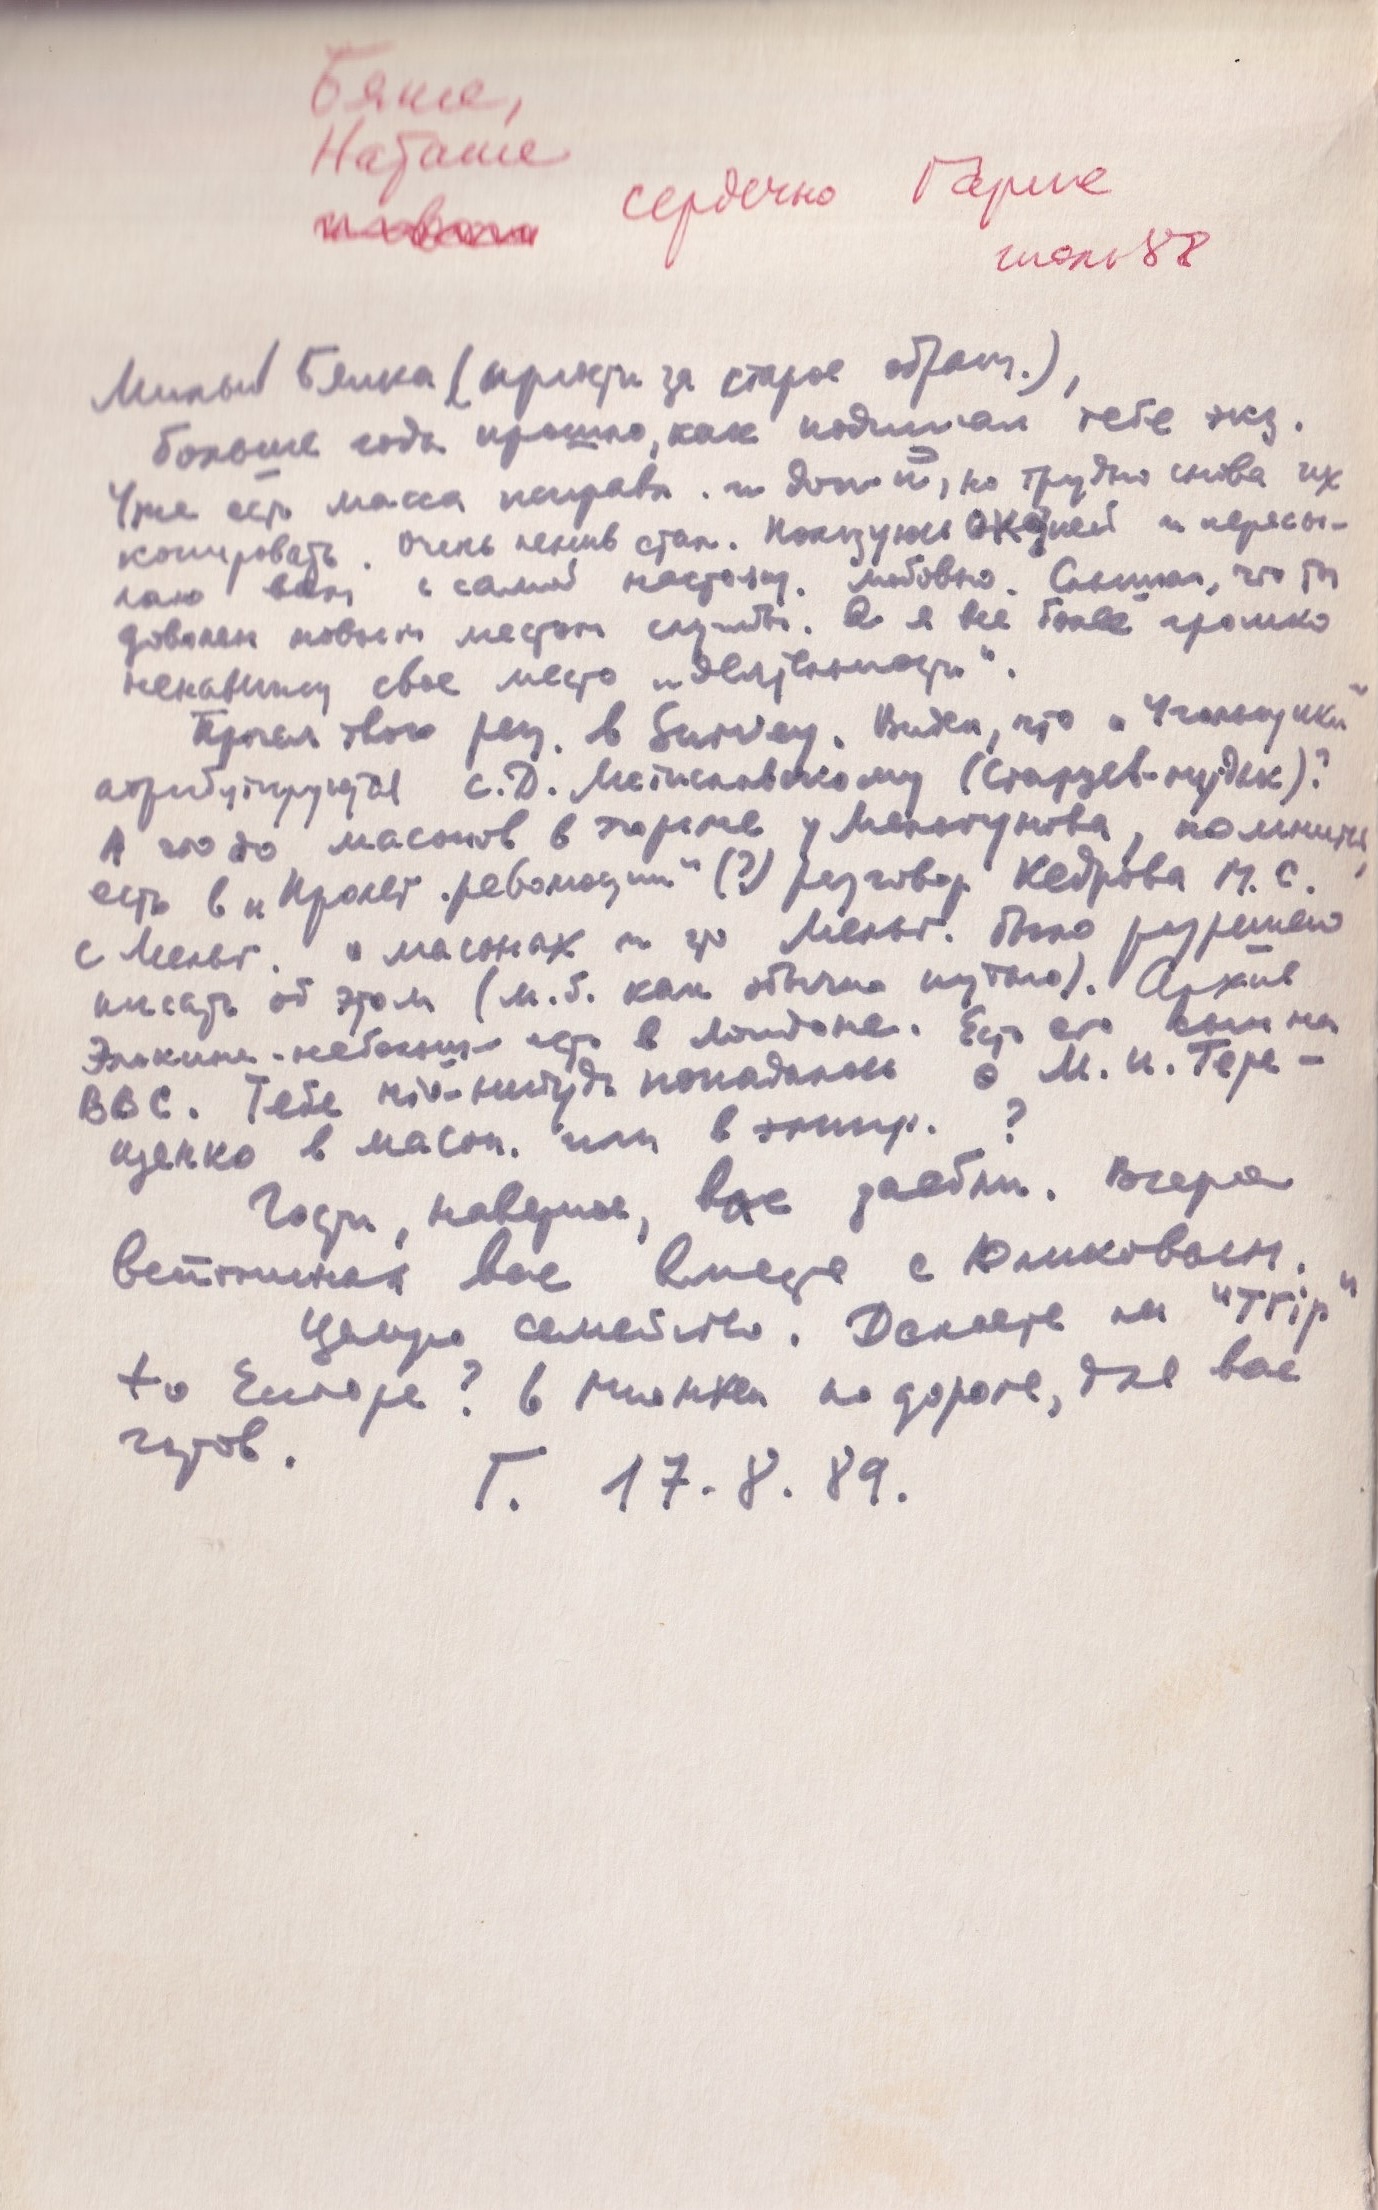 Бяше,
Наташе
сердечно Гарик
июль 88
Милый Бяшка (прости за старое обращ.),
больше года прошло, как подписал тебе экз.
Уже есть масса исправл. и допол, но трудно снова их
копировать. Очень ленив стал. Пользуюсь оказией и пересы-
лаю вам с самой настоящ. любовью. Слышал, что ты
доволен новым местом службы. А я все более громко
ненавижу свое место „деятельности“.
Прочел твою рец. в Survey. Видел, что „Угольщики“
атрибутируются С.Д. Мстиславскому (Старцев-мудак)?
А что до масонов в тюрьме у Мельгунова, помнится,
есть в „Пролет. революции“ (?) разговор Кедрова М.С.
с Мельг. о масонах и что Мельг. было разрешено
писать об этом (м.б. как обычно путаю). Архив
Элькина - небольш - есть в Лондоне. Есть его сын на
BBC. Тебе что-нибудь попадалось о М.И. Тере-
щенко в масон. или в эмигр. ?
Гости, наверное, вас заебли. Вчера
вспоминал вас вместе с Юликовым.
Целую семейство. Daкaете на "Trip"
to Europe? В Мюнхен по дороге, для вас
готов.
Г. 17.8.89.